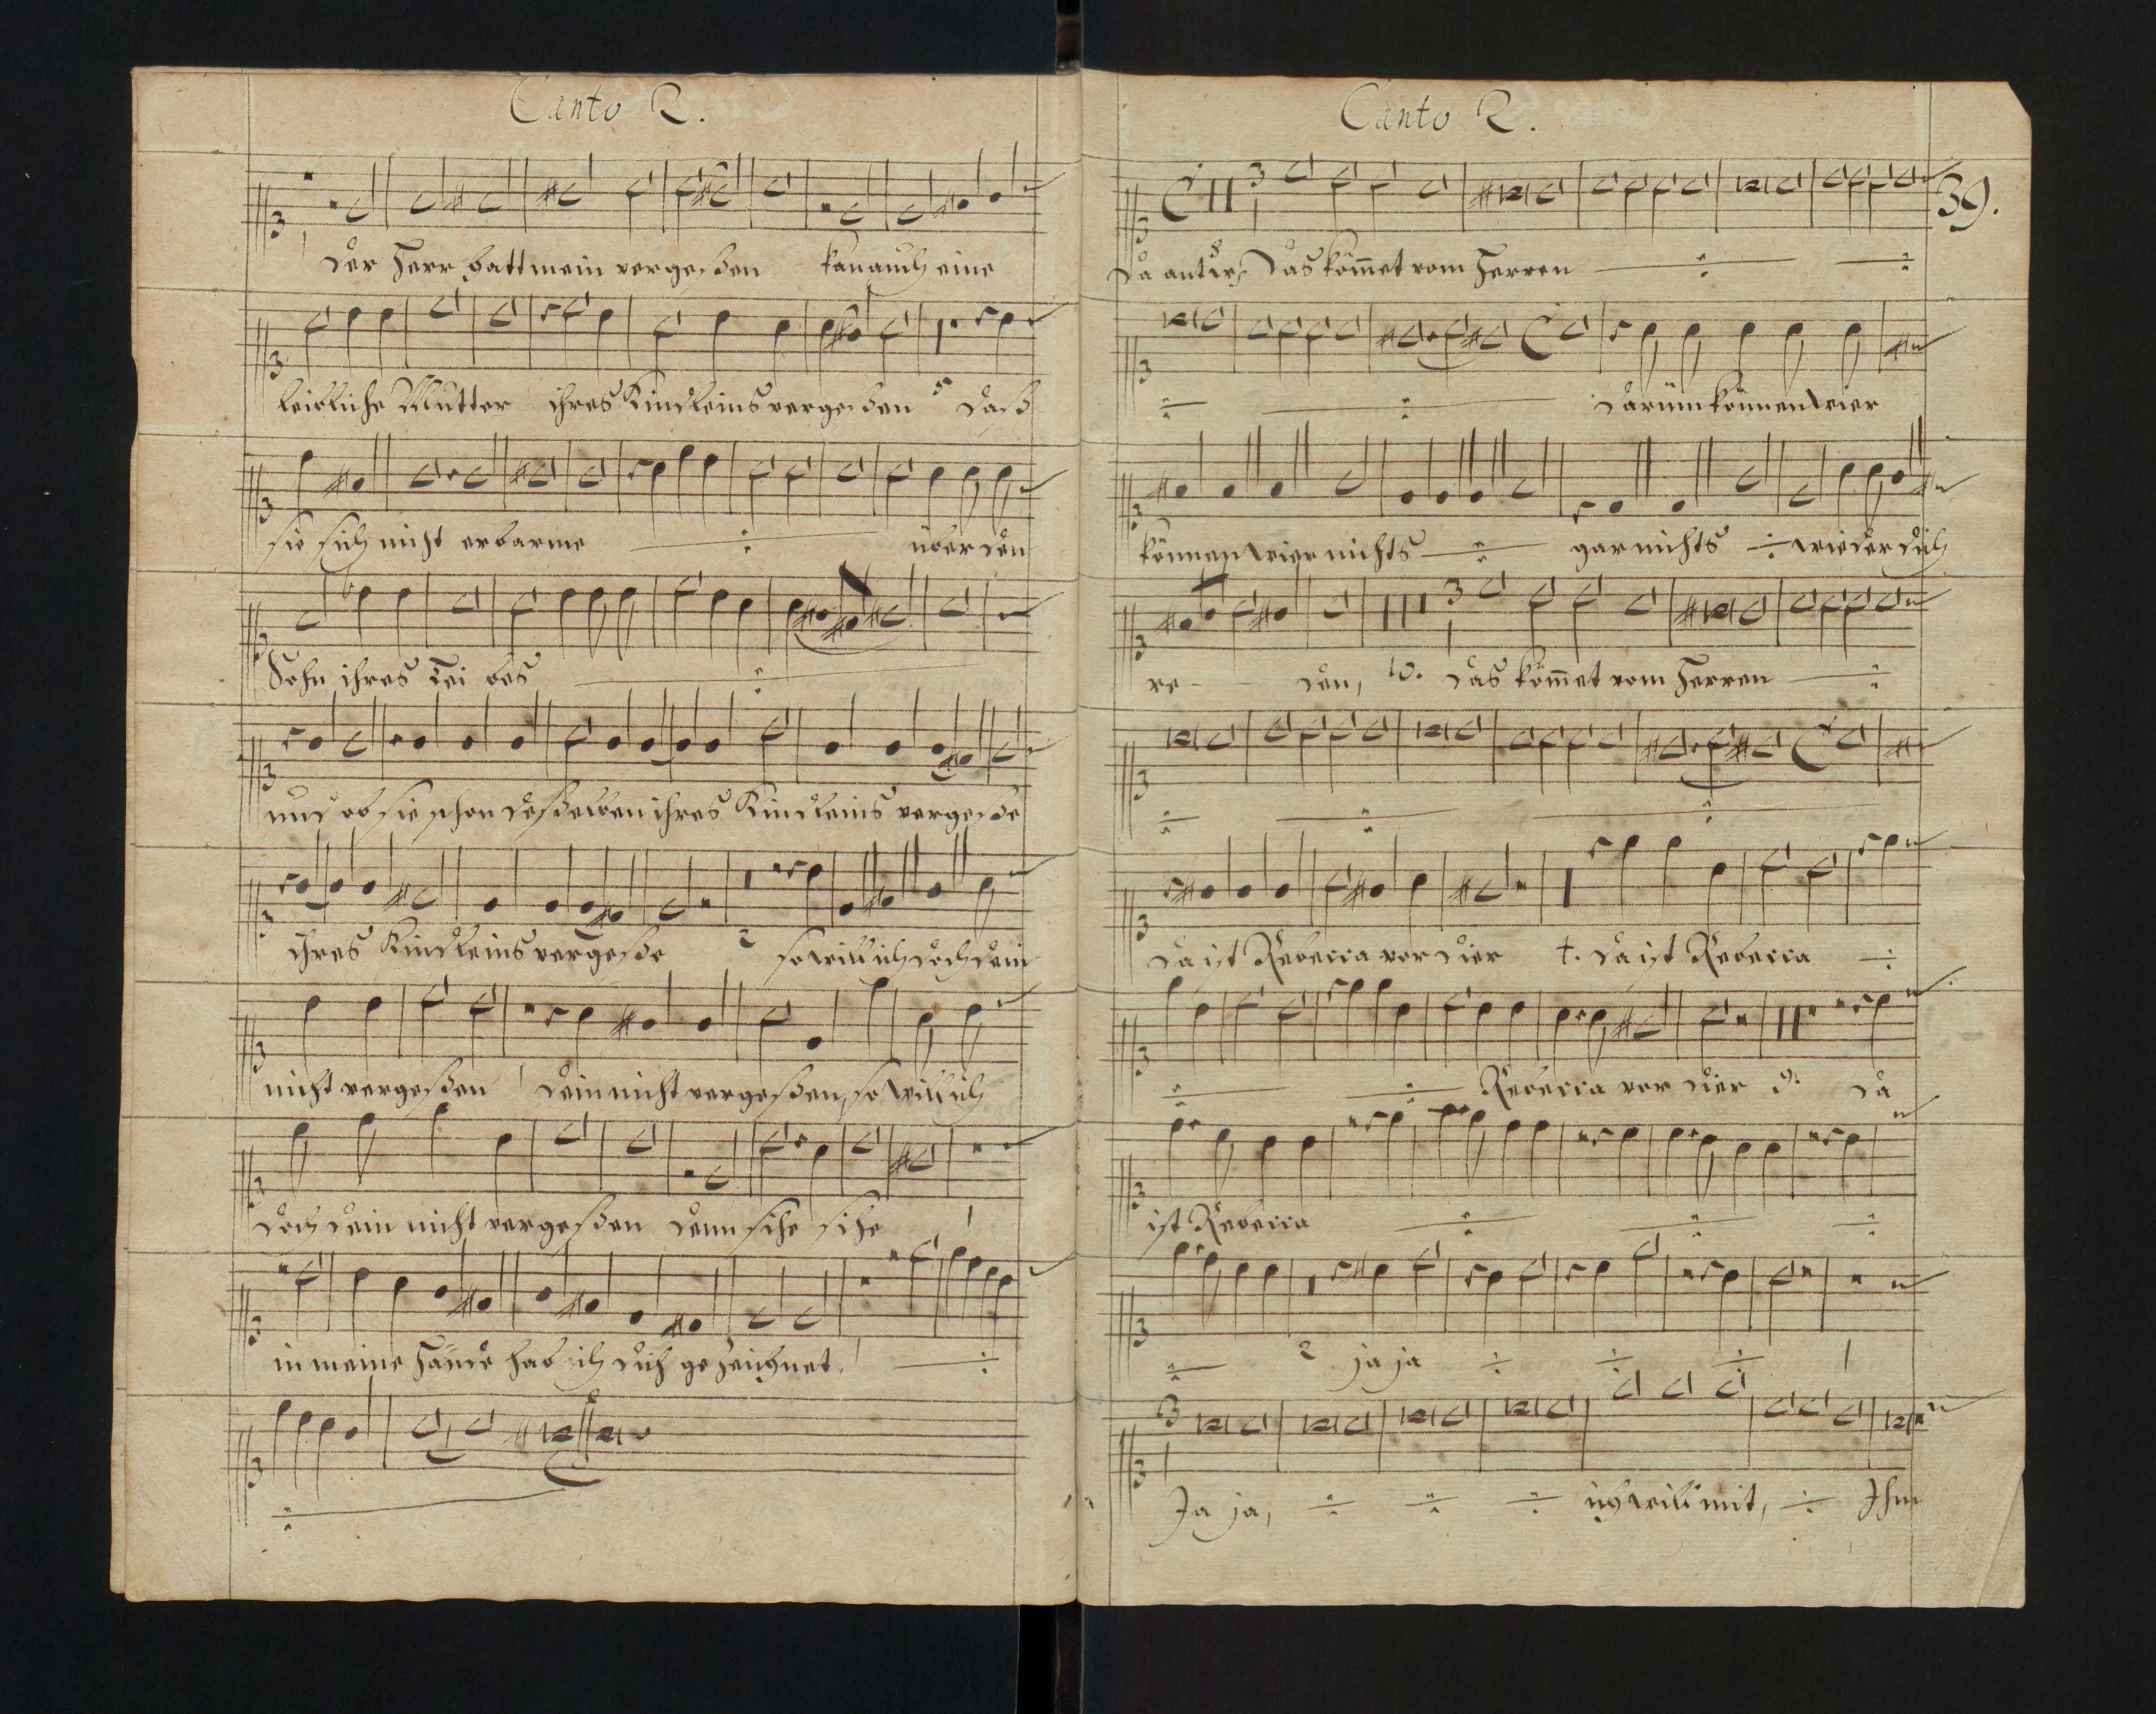 Canto 2.
der Herr hatt mein vergeßen kan auch eine
leibliche Mutter ihres Kindleins vergeßen 5 daß
sie sich nicht erbarme über den
Sohn ihres Leibes
und ob sie schon deßelben ihres Kindleins vergeße
ihres Kindleins vergeße 2 so will ich doch dein
nicht vergeßen dein nicht vergeßen, so will ich
doch dein nicht vergeßen denn sihe sihe
in meine Hände hab ich dich gezeichnet
Canto 2.
39.
Das kom̅et vom Herren
darum können wier
können wier nichts gar nichts wieder dich
re- den, 10. das kom̅et vom Herren
da ist Rebecca vor dier †. da ist Rebecca
Rebecca vor dier 9. da
ist Rebecca
2 ja ja
Ja ja, ich will mit, Ihm